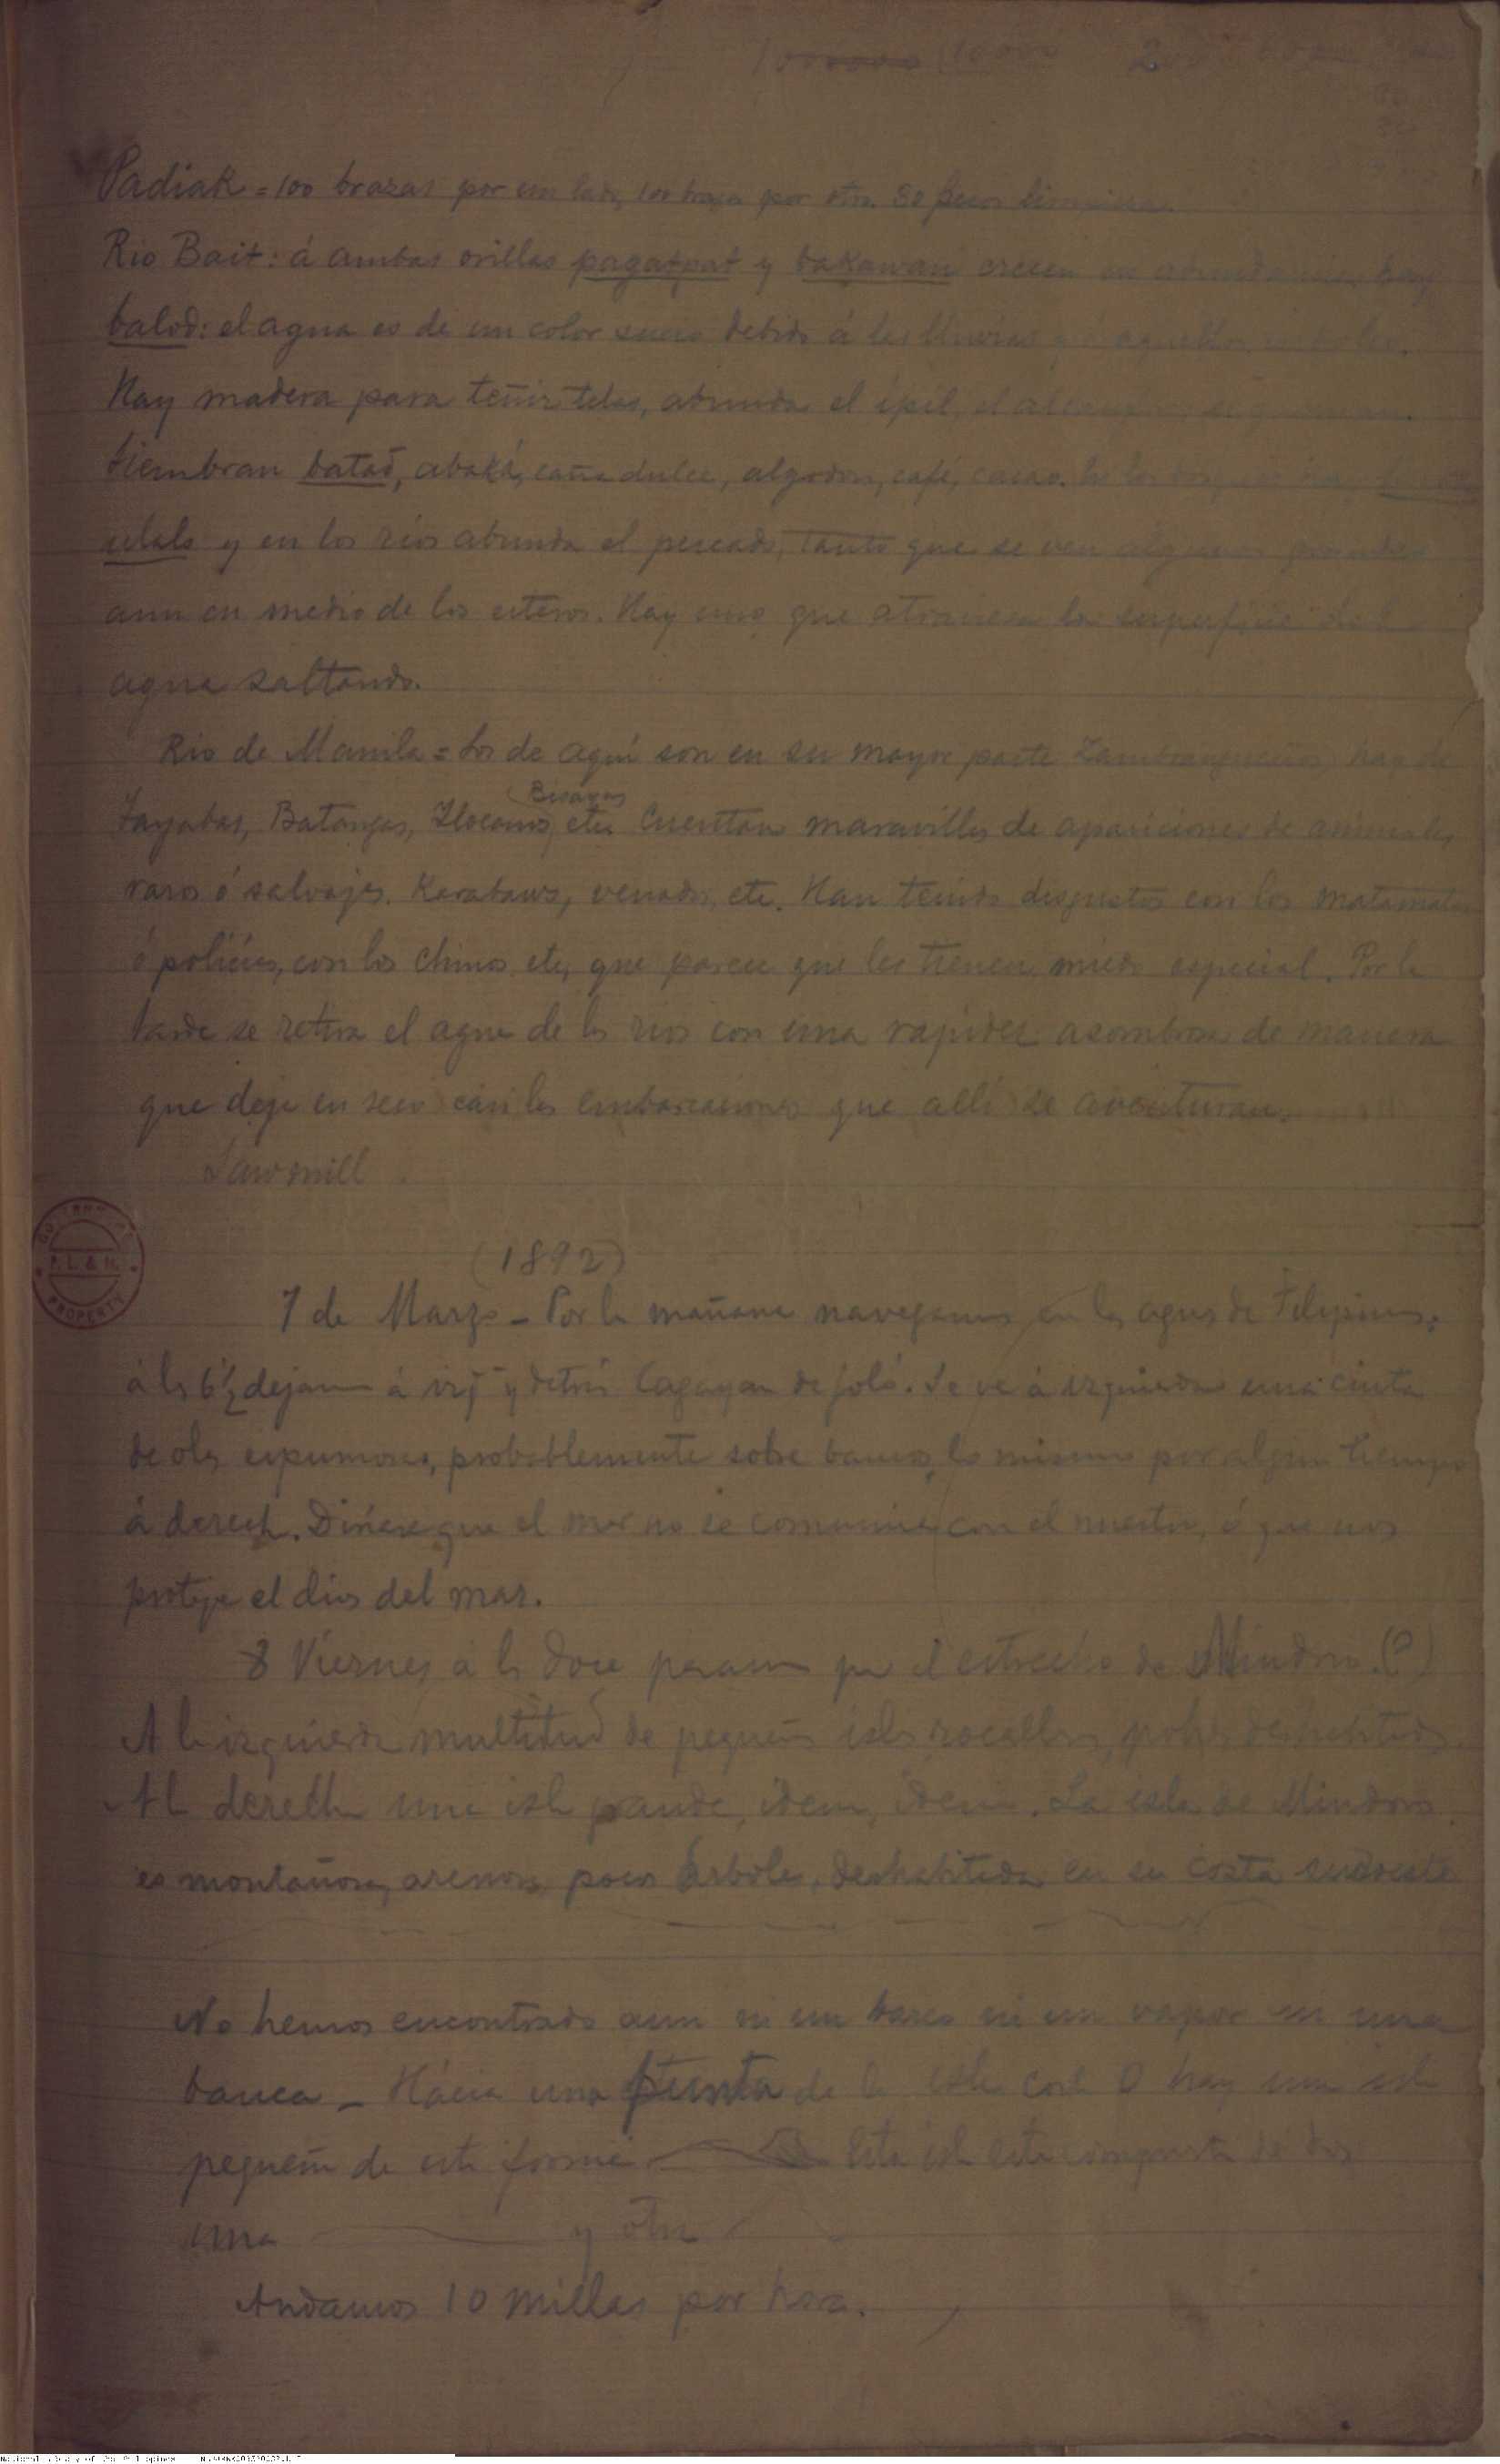 1000000 11000
Padiak = 100 brazas por un lado, 100 braza por otro. 50 pesos
Rio Bait: á ambas orillas pagatpat y bakawan crecen en abundancia, hay
balod: el agua es de un color sucio debido á las lluvias y á aquellos
Hay madera para teñir telas, abunda el ipil, el
Siembran batad, abaká, caña dulce, algodon, café, cacao. En los bosques hay
ulals y en los rios abunda el pescado, tanto que se ven algunos grandes
aun en medio de los esteros. Hay uno que atraviesa la superficie del
agua saltando.
Rio de Manila = Los de aquí son en su mayor parte Zamboangueños, hay de
Tayabas, Batangas, Ilocanos, Bisayas etc. Cuentan maravillas de apariciones de animales
raros ó salvajes. Karabaws, venados, etc. Han tenido disgustos con los matamatas
ó policías, con los chinos etc, que parece que les tienen miedo especial. Por la
tarde se retira el agua de los rios con una rapidez asombrosa de manera
que deja en seco casi las embarcaciones que allí se aventuran.
Sawmill
(1892)
7 de Marzo - Por la mañana navegamos en las aguas de Filipinas:
á las 6½ dejamos á izqª y detrás Cagayan de Joló. Se ve á izquierda una cinta
de olas espumosas, probablemente sobre bancos, lo mismo por algun tiempo
á derecha. Diríase que el mar no se comunica con el nuestro, ó que nos
proteje el dios del mar.
8 Viernes á las doce pasamos por el estrecho de Mindoro. (?)
A la izquierda multitud de pequeñas islas rocallosas, deshabitadas.
A la derecha una isla grande, idem, idem. La isla de Mindoro
es montañosa, arenosa pocos árboles, deshabitada en su costa sudoeste
No hemos encontrado aun ni un barco ni un vapor ni una
banca - Hácia una punta de la isla costa O hay una isla
pequeña de esta forma Esta isla esta compuesta de dos
una y otra
Andamos 10 millas por hora.
GOVERNMENT
P. L. & M.
PROPERTY
National Library of the Philippines